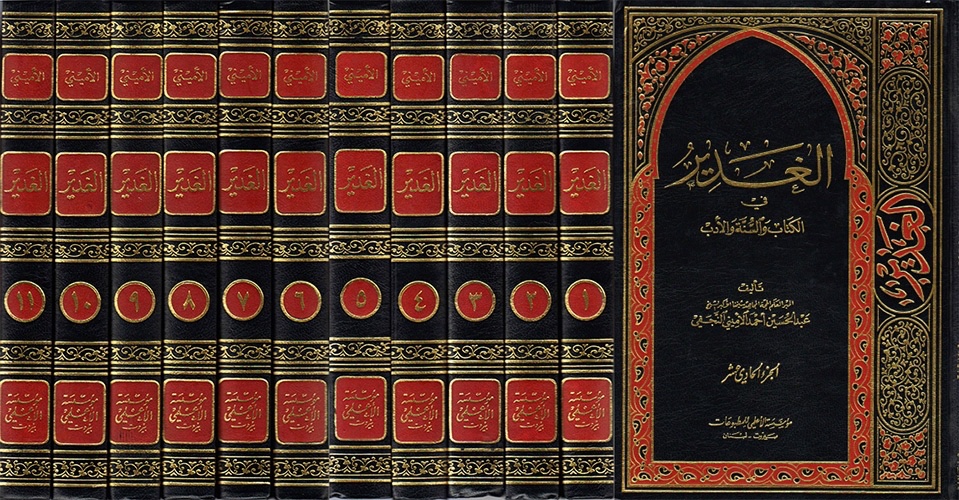 الغدير
في
الكتاب والسنة والأدب
تأليف
عبد الحسين أحمد الأميني النجفي
الجزء الحادي عشر
مؤسسة الأعلمي للمطبوعات
بيروت - لبنان
الغدير
الأميني
الغدير
١
مؤسسة
الأعلمي
بيروت
الأميني
الغدير
٢
مؤسسة
الأعلمي
بيروت
الأميني
الغدير
٣
مؤسسة
الأعلمي
بيروت
الأميني
الغدير
٤
مؤسسة
الأعلمي
بيروت
الأميني
الغدير
٥
مؤسسة
الأعلمي
بيروت
الأميني
الغدير
٦
مؤسسة
الأعلمي
بيروت
الأميني
الغدير
٧
مؤسسة
الأعلمي
بيروت
الأميني
الغدير
٨
مؤسسة
الأعلمي
بيروت
الأميني
الغدير
٩
مؤسسة
الأعلمي
بيروت
الأميني
الغدير
١٠
مؤسسة
الأعلمي
بيروت
الأميني
الغدير
١١
مؤسسة
الأعلمي
بيروت